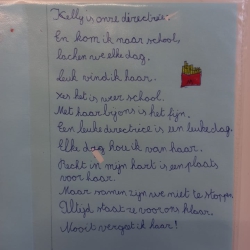 Kelly is onze directrice
En kom ik naar school,
lachen we elke dag.
Leuk vind ik haar.
Yes het is weer school.
Met haar bij ons is het fijn.
Een leuke directrice is een leuke dag.
Elke dag hou ik van haar.
Recht in mijn hart is een plaats
voor haar.
Maar samen zijn we niet te stoppen
Altijd staat ze voor ons klaar.
Nooit vergeet ik haar!